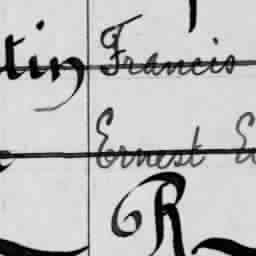 tin Francis
Ernest E
R